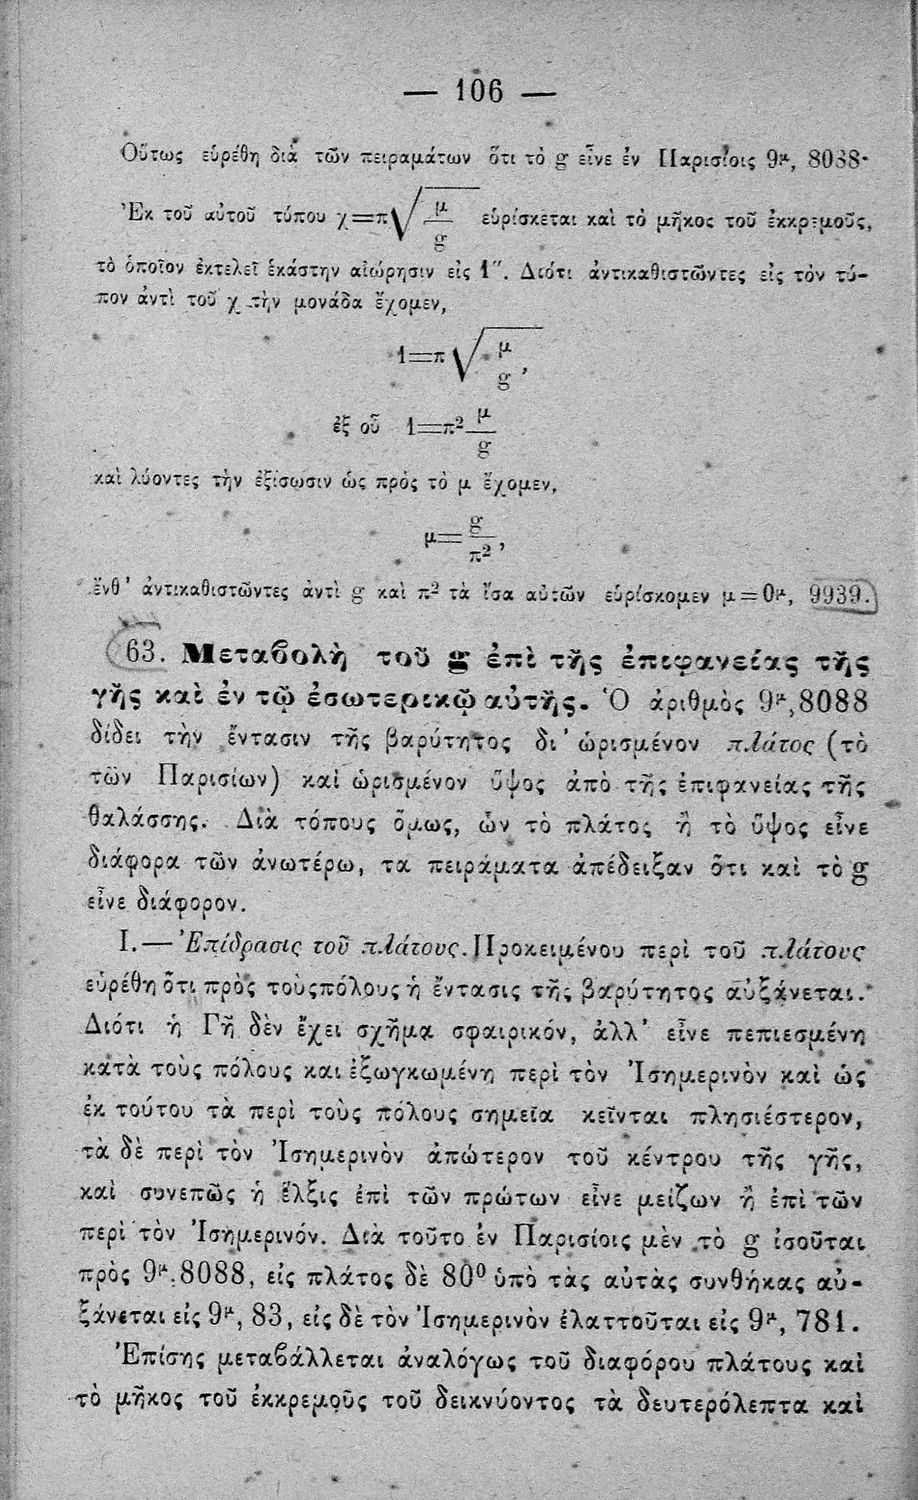 — 106 —
Οὕτως εὑρέθη διὰ τῶν πειραμάτων ὅτι τὸ g εἶνε ἐν Παρισίοις 9μ, 8088·
Ἐκ τοῦ αὐτοῦ τύπου χ=π√μ/g εὑρίσκεται καὶ τὸ μῆκος τοῦ ἐκκρεμοῦς,
τὸ ὁποῖον ἐκτελεῖ ἑκάστην αἰώρησιν εἰς 1″. Διότι ἀντικαθιστῶντες εἰς τὸν τύ-
πον ἀντὶ τοῦ χ τὴν μονάδα ἔχομεν,
1=π√μ/g,
ἐξ οὗ 1=π² μ/g
καὶ λύοντες τὴν ἐξίσωσιν ὡς πρὸς τὸ μ ἔχομεν,
μ=g/π²,
ἔνθ' ἀντικαθιστῶντες ἀντὶ g καὶ π² τὰ ἴσα αὐτῶν εὑρίσκομεν μ=0μ, 9939.
63. Μεταβολὴ τοῦ g ἐπὶ τῆς ἐπιφανείας τῆς
γῆς καὶ ἐν τῷ ἐσωτερικῷ αὐτῆς. Ὁ ἀριθμὸς 9μ,8088
δίδει τὴν ἔντασιν τῆς βαρύτητος δι' ὡρισμένον πλάτος (τὸ
τῶν Παρισίων) καὶ ὡρισμένον ὕψος ἀπὸ τῆς ἐπιφανείας τῆς
θαλάσσης. Διὰ τόπους ὅμως, ὧν τὸ πλάτος ἢ τὸ ὕψος εἶνε
διάφορα τῶν ἀνωτέρω, τα πειράματα ἀπέδειξαν ὅτι καὶ τὸ g
εἶνε διάφορον.
I.—Ἐπίδρασις τοῦ πλάτους. Προκειμένου περὶ τοῦ πλάτους
εὑρέθη ὅτι πρὸς τοὺς πόλους ἡ ἔντασις τῆς βαρύτητος αὐξάνεται.
Διότι ἡ Γῆ δὲν ἔχει σχῆμα σφαιρικόν, ἀλλ' εἶνε πεπιεσμένη
κατὰ τοὺς πόλους και ἐξωγκωμένη περὶ τὸν Ἰσημερινὸν καὶ ὡς
ἐκ τούτου τὰ περὶ τοὺς πόλους σημεῖα κεῖνται πλησιέστερον,
τὰ δὲ περὶ τὸν Ἰσημερινὸν ἀπώτερον τοῦ κέντρου τῆς γῆς,
καὶ συνεπῶς ἡ ἕλξις ἐπὶ τῶν πρώτων εἶνε μείζων ἢ ἐπὶ τῶν
περὶ τὸν Ἰσημερινόν. Διὰ τοῦτο ἐν Παρισίοις μὲν τὸ g ἰσοῦται
πρὸς 9μ,8088, εἰς πλάτος δὲ 80⁰ ὑπὸ τὰς αὐτὰς συνθήκας αὐ-
ξάνεται εἰς 9μ, 83, εἰς δὲ τὸν Ἰσημερινὸν ἐλαττοῦται εἰς 9μ, 781.
Ἐπίσης μεταβάλλεται ἀναλόγως τοῦ διαφόρου πλάτους καὶ
τὸ μῆκος τοῦ ἐκκρεμοῦς τοῦ δεικνύοντος τὰ δευτερόλεπτα καὶ